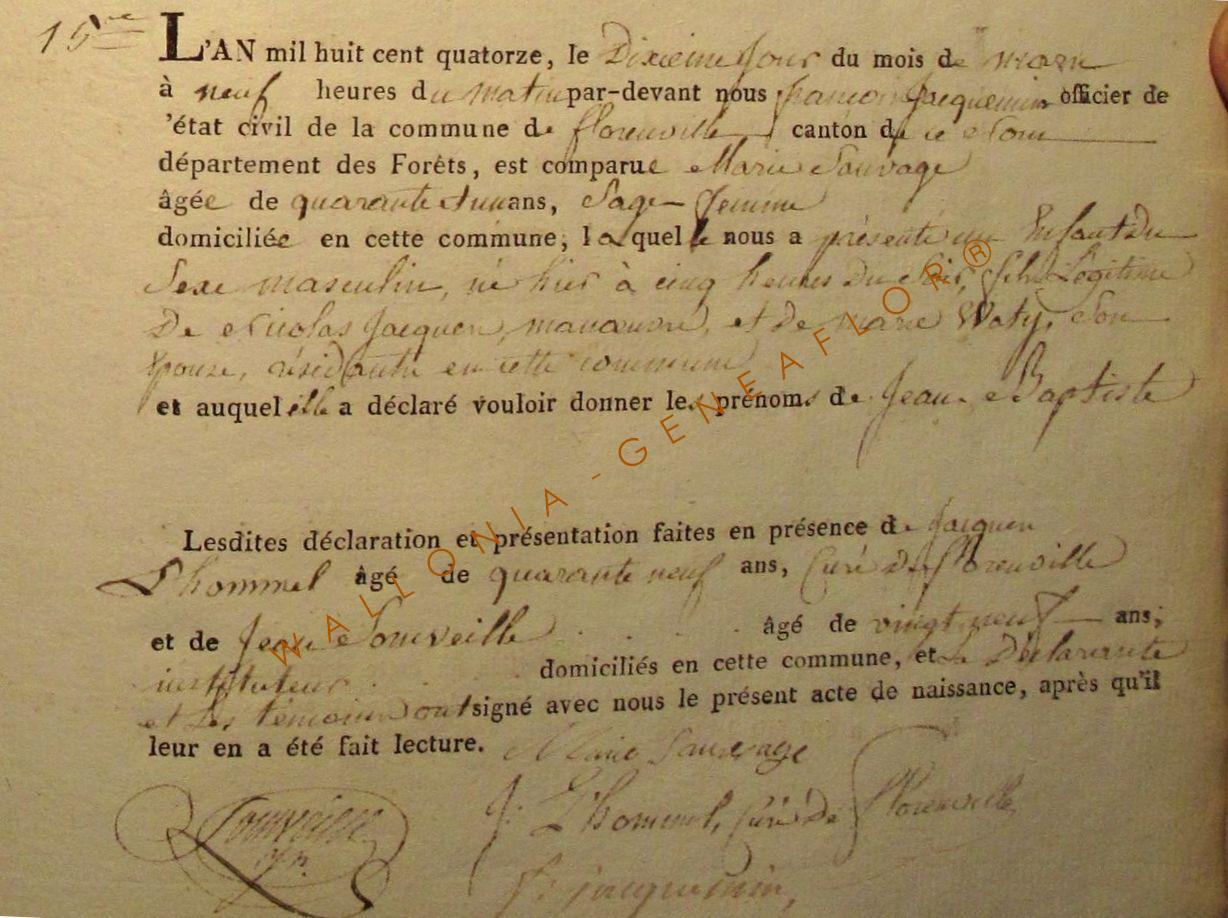 15me
L'AN mil huit cent quatorze, le Dixieme Jour du mois de mars
à neuf heures du matin par-devant nous françois Jacquemin officier de
'état civil de la commune de florenville, canton de ce Nom
département des Forêts, est comparue Marie Sauvage
âgée de quarante et un ans, Sage-femme
domiciliée en cette commune, laquelle nous a présenté un Enfant Du
Sexe masculin, né hier à cinq heures Du soir, fils Légitime
De Nicolas Jacques, manœuvre, et de Marie Waty, Son
Epouse, résidante en cette commune
et auquel elle a déclaré vouloir donner les prénoms de Jean Baptiste
Lesdites déclaration et présentation faites en présence de Jacques
L'hommel âgé de quarante neuf ans, Curé De florenville
et de Jean Nouveille âgé de vingt neuf ans,
instituteur domiciliés en cette commune, et La Déclarante
et Les témoins ont signé avec nous le présent acte de naissance, après qu'il
leur en a été fait lecture. Marie Sauvage
J. L'hommel, Curé De Florenville
f: jacquemin,
WALLONIA-GENEAFLOR®